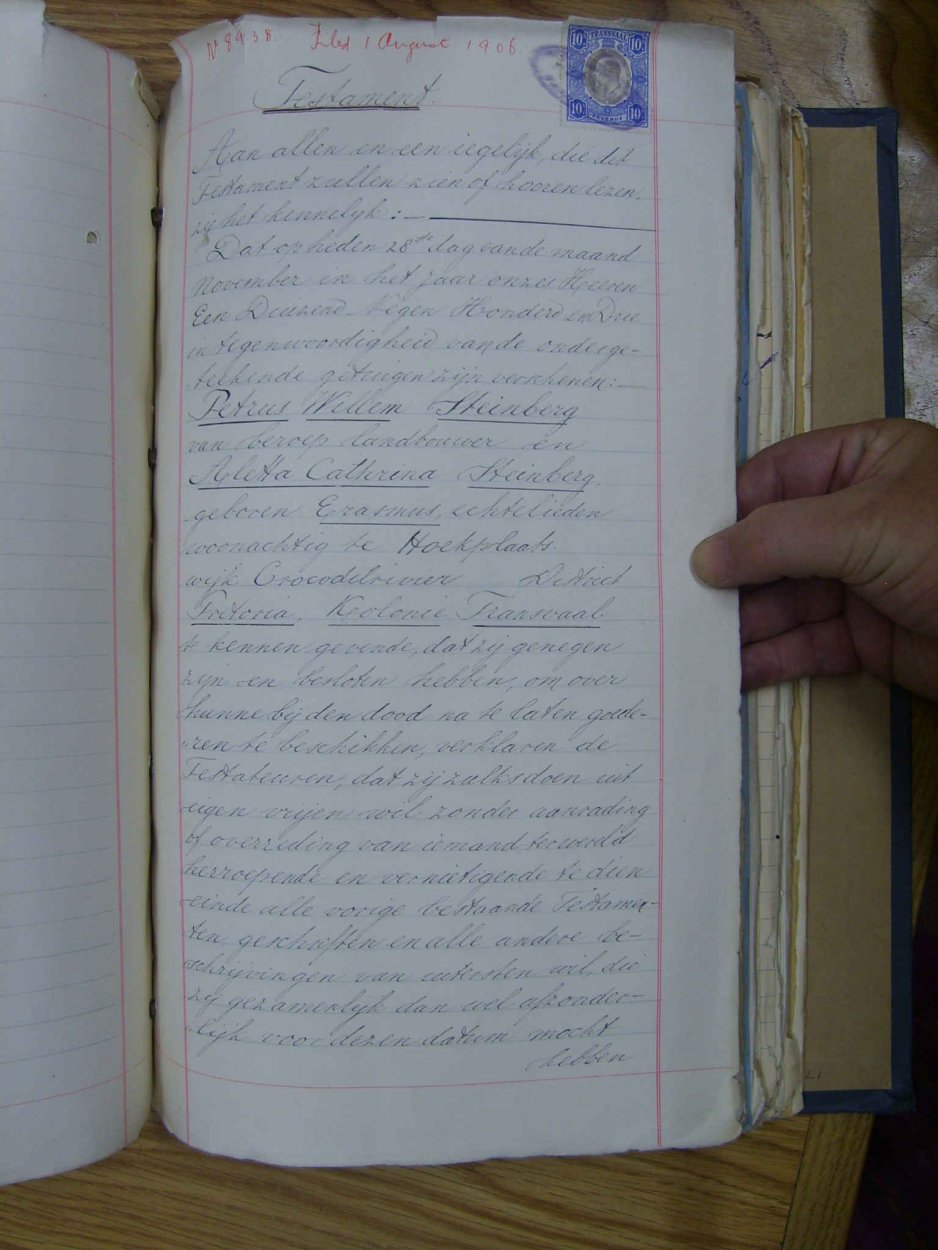 No 8938 Filed 1 August 1906.
10s TRANSVAAL 10s
10s REVENUE 10s
Testament.
Aan allen en een iegelijk, die dit
Testament zullen zien of hooren lezen,
zij het kennelijk:—
Dat op heden 28ste dag van de maand
November in het jaar onzes Heeren
Een Duizend Negen Honderd en Drie
in tegenwoordigheid van de onderge-
teekende getuigen zijn verschenen:—
Petrus Willem Steinberg
van beroep landbouwer en
Aletta Cathrina Steinberg,
geboren Erasmus, echtelieden
woonachtig te Hoekplaats
wijk Crocodilrivier District
Pretoria, Kolonie Transvaal
te kennen gevende, dat zij genegen
zijn en besloten hebben, om over
hunne bij den dood na te laten goede-
ren te beschikken, verklaren de
Testateuren, dat zij zulks doen uit
eigen vrijen wil, zonder aanrading
of overreding van iemand ter wereld
herroepende en vernietigende te dien
einde alle vorige bestaande Testamen-
ten, geschriften en alle andere be-
schrijvingen van uitersten wil, die
zij gezamenlijk dan wel afzonder-
lijk voor dezen datum mocht
hebben